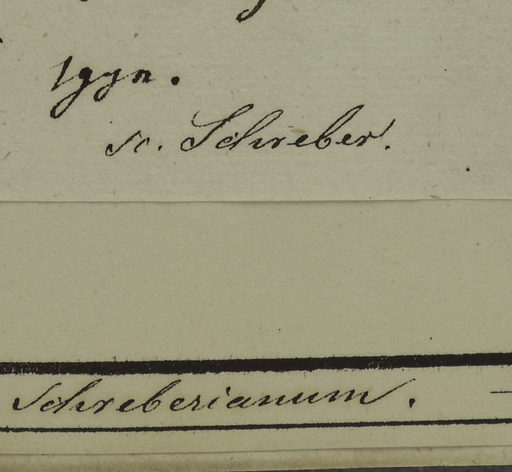 1gyn.
sc. Schreber.
Schreberianum.